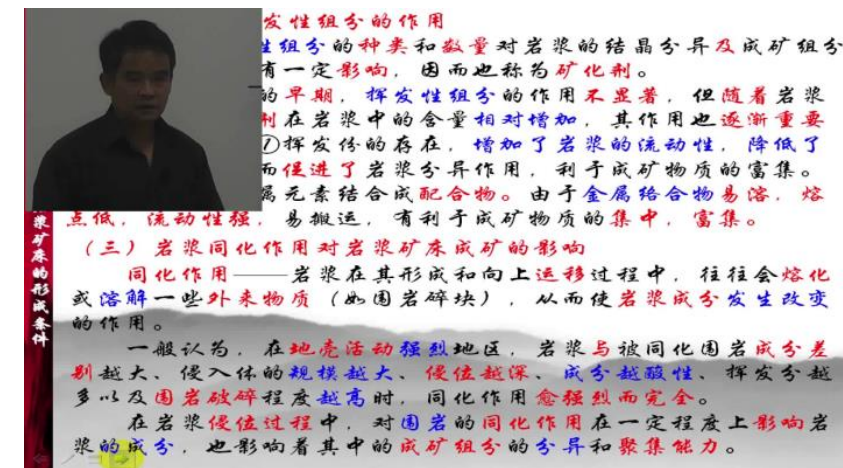 发性组分的作用
性组分的种类和数量对岩浆的结晶分异及成矿组分
有一定影响，因而也称为矿化剂。
的早期，挥发性组分的作用不显著，但随着岩浆
剂在岩浆中的含量相对增加，其作用也逐渐重要
①挥发份的存在，增加了岩浆的流动性，降低了
而促进了岩浆分异作用，利于成矿物质的富集。
属元素结合成配合物。由于金属络合物易溶，熔
点低，流动性强，易搬运，有利于成矿物质的集中，富集。
（三）岩浆同化作用对岩浆矿床成矿的影响
同化作用——岩浆在其形成和向上运移过程中，往往会熔化
或溶解一些外来物质（如围岩碎块），从而使岩浆成分发生改变
的作用。
一般认为，在地壳活动强烈地区，岩浆与被同化围岩成分差
别越大、侵入体的规模越大、侵位越深、成分越酸性、挥发分越
多以及围岩破碎程度越高时，同化作用愈强烈而完全。
在岩浆侵位过程中，对围岩的同化作用在一定程度上影响岩
浆的成分，也影响着其中的成矿组分的分异和聚集能力。
浆矿床的形成条件